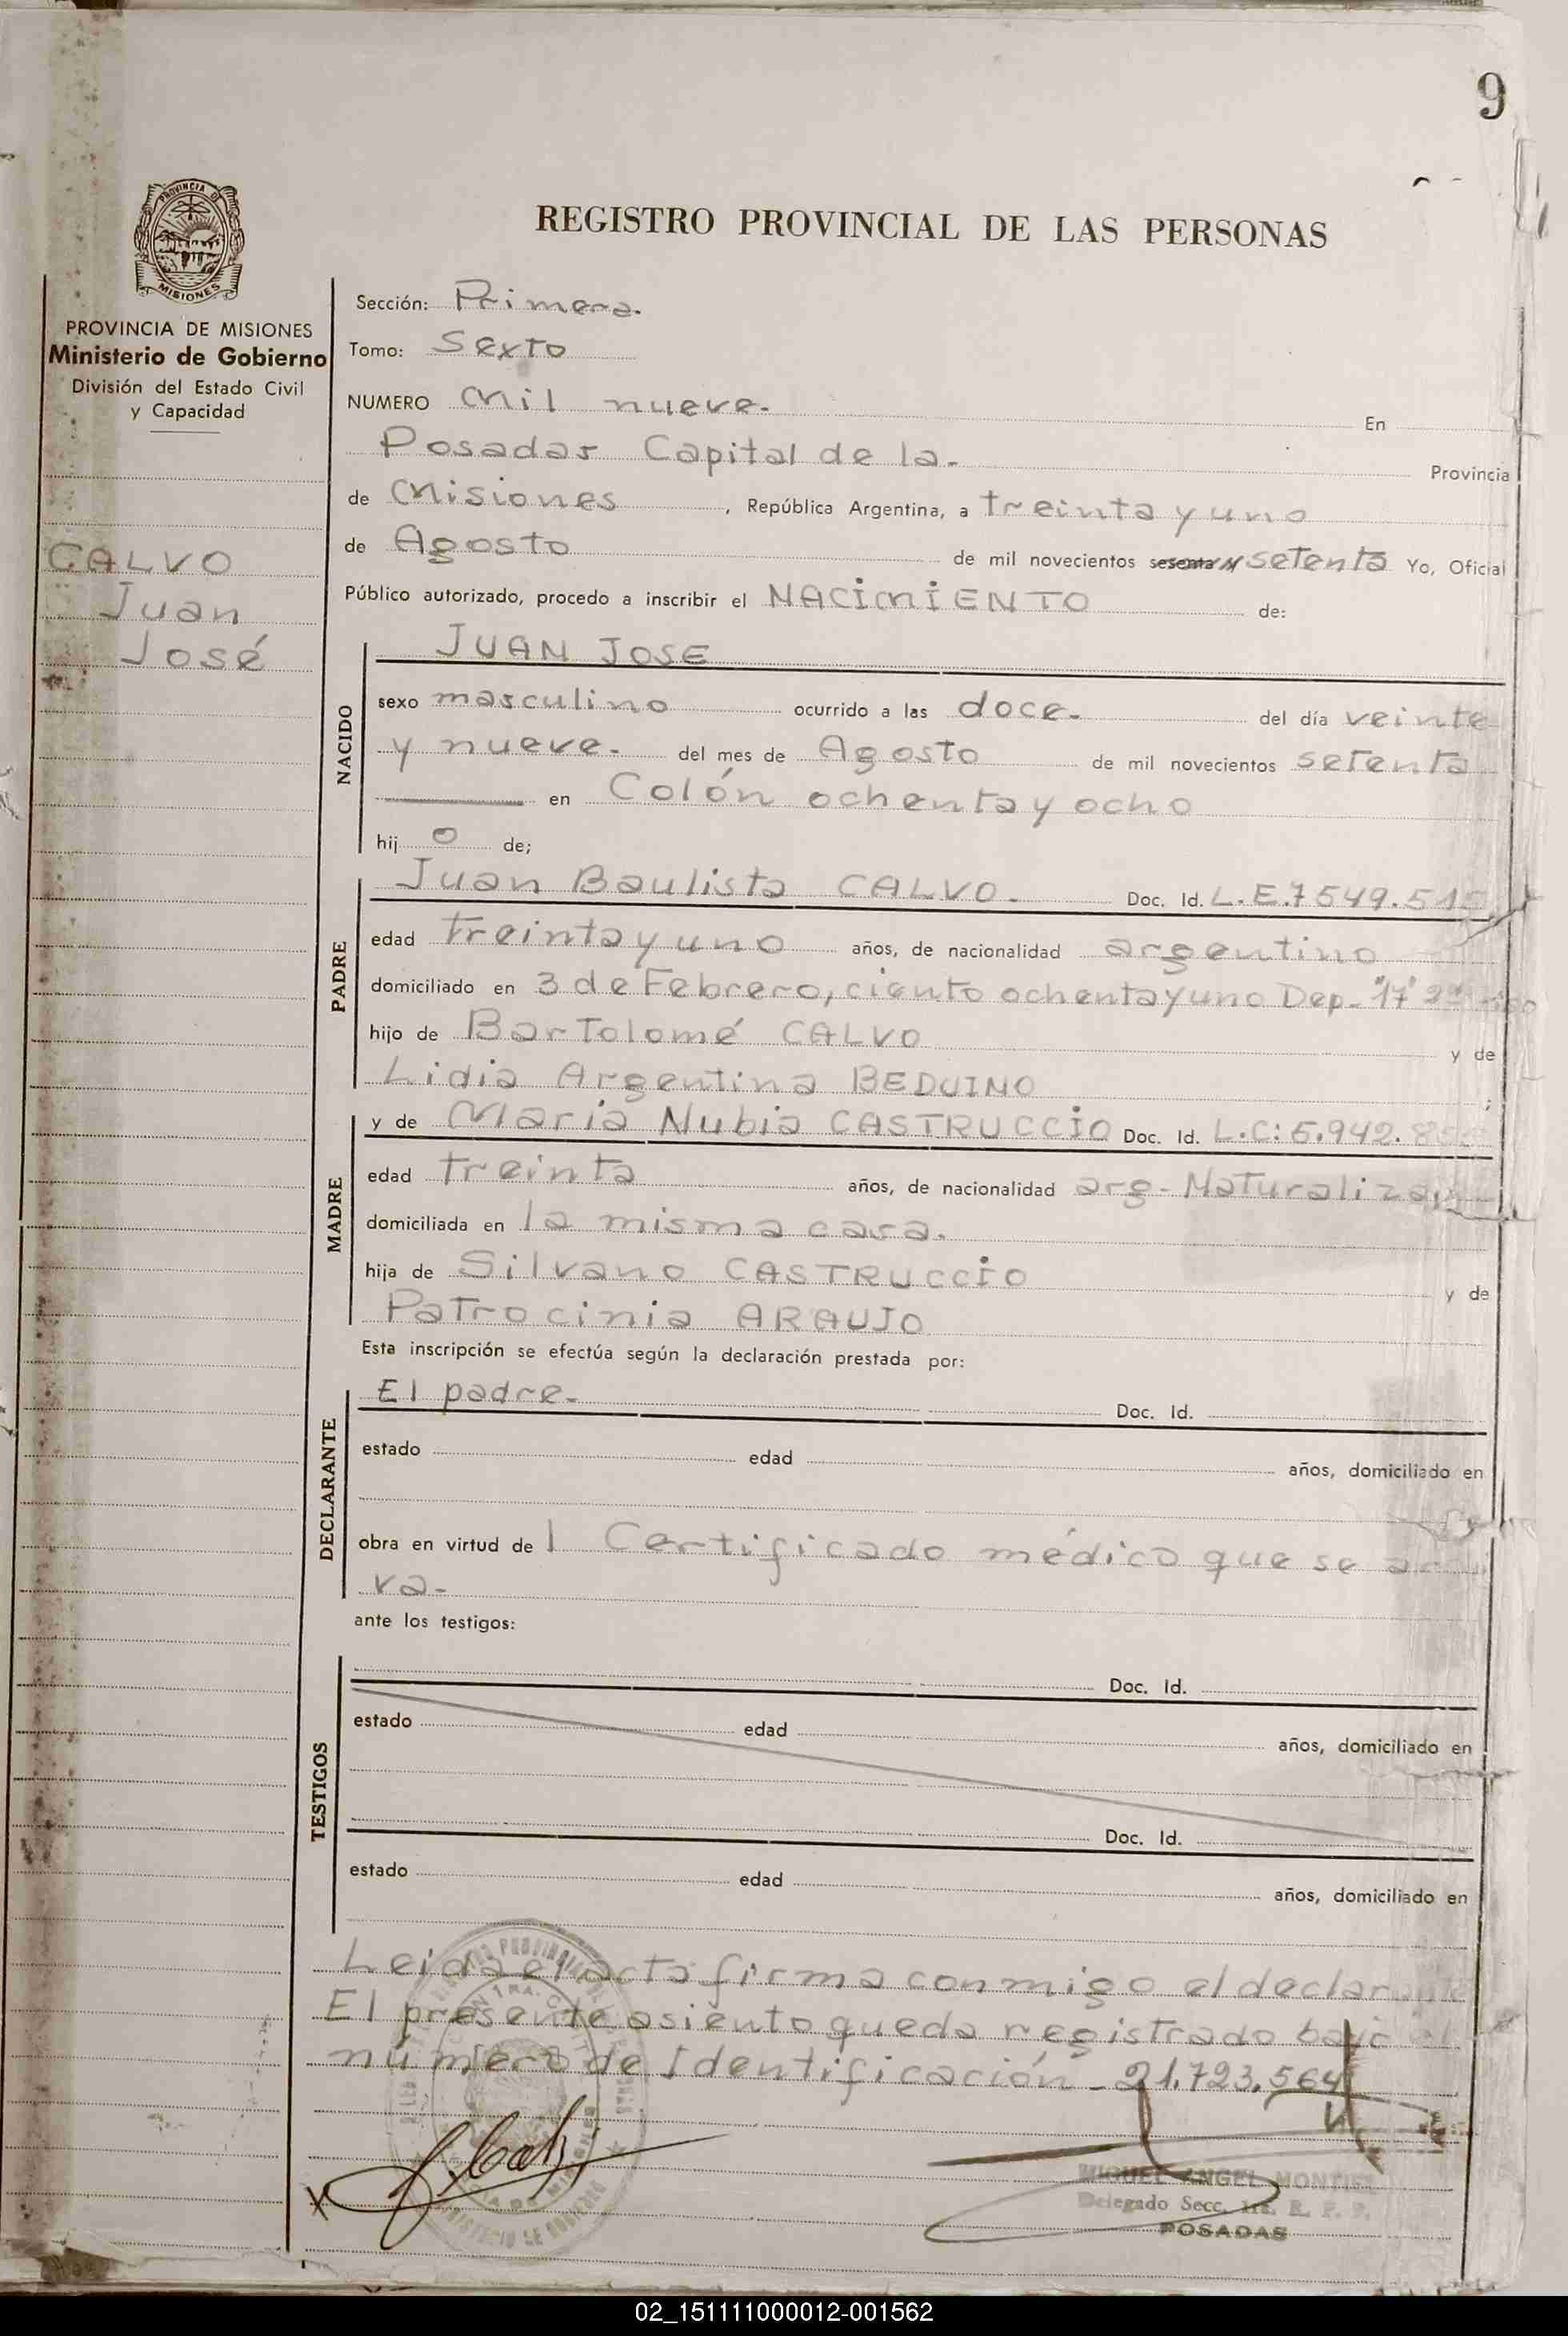 9
REGISTRO PROVINCIAL DE LAS PERSONAS
PROVINCIA DE
MISIONES
PROVINCIA DE MISIONES
Ministerio de Gobierno
División del Estado Civil
y Capacidad
CALVO
Juan
José
Sección: Primera.
Tomo: Sexto
NUMERO mil nueve. En
Posadas Capital de la. Provincia
de Misiones, República Argentina, a treinta y uno
de Agosto de mil novecientos sesenta setenta Yo, Oficial
Público autorizado, procedo a inscribir el NACIMIENTO de:
NACIDO
JUAN JOSE
sexo masculino ocurrido a las doce. del día veinte
y nueve. del mes de Agosto de mil novecientos setenta
en Colón ochenta y ocho
hij o de;
PADRE
Juan Bautista CALVO. Doc. Id. L.E.7549.515
edad treinta y uno años, de nacionalidad argentino
domiciliado en 3 de Febrero, ciento ochenta y uno Dep.
hijo de Bartolomé CALVO y de
Lidia Argentina BEDUINO ;
MADRE
y de Maria Nubia CASTRUCCIO Doc. Id. L.C: 5.942.
edad treinta años, de nacionalidad arg-
domiciliada en la misma casa.
hija de Silvano CASTRUCCIO y de
Patrocinia ARAUJO
Esta inscripción se efectúa según la declaración prestada por:
DECLARANTE
El padre. Doc. Id.
estado edad años, domiciliado en
obra en virtud de 1 Certificado médico que se
va-
ante los testigos:
TESTIGOS
Doc. Id.
estado edad años, domiciliado en
Doc. Id.
estado edad años, domiciliado en
Leida el acta firma conmigo el
El presente asiento queda registrado bajo el
número de Identificación - 21.723.564
MIGUEL ANGEL MONTIEL
Delegado Secc. 1ra. R. P. P.
POSADAS
02_151111000012-001562